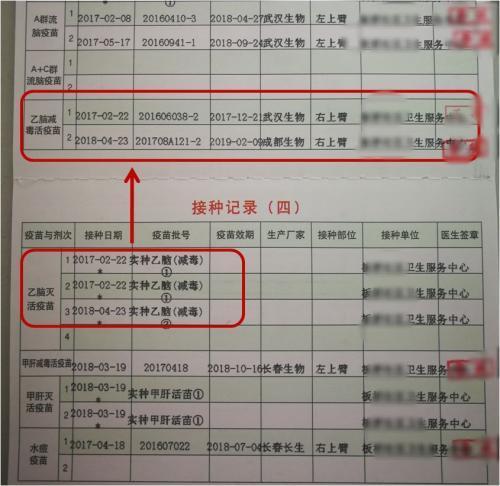 A群流脑疫苗 1 2017-02-08 20160410-3 2018-04-27 武汉生物 左上臂
2 2017-05-17 20160941-1 2018-09-24 武汉生物 左上臂 卫生服务
A+C群流脑疫苗 1
2
乙脑减毒活疫苗 1 2017-02-22 201606038-2 2017-12-21 武汉生物 右上臂 卫生服务中心
2 2018-04-23 201708A121-2 2019-02-09 成都生物 右上臂 卫生服务中心
接种记录（四）
疫苗与剂次 接种日期 疫苗批号 疫苗效期 生产厂家 接种部位 接种单位 医生签章
乙脑灭活疫苗 1 2017-02-22 * 实种乙脑(减毒)① 卫生服务中心
2 2017-02-22 * 实种乙脑(减毒)① 板 卫生服务中心
3 2018-04-23 * 实种乙脑(减毒)② 板 卫生服务中心
4
甲肝减毒活疫苗 2018-03-19 20170418 2018-10-16 长春生物 左上臂 板 卫生服务
甲肝灭活疫苗 1 2018-03-19 * 实种甲肝活苗① 板 卫生服务中心
2 2018-03-19 * 实种甲肝活苗① 板 卫生服务中心
水痘疫苗 1 2017-04-18 201607022 2018-07-04 长春长生 右上臂 板 卫生服务中心
2